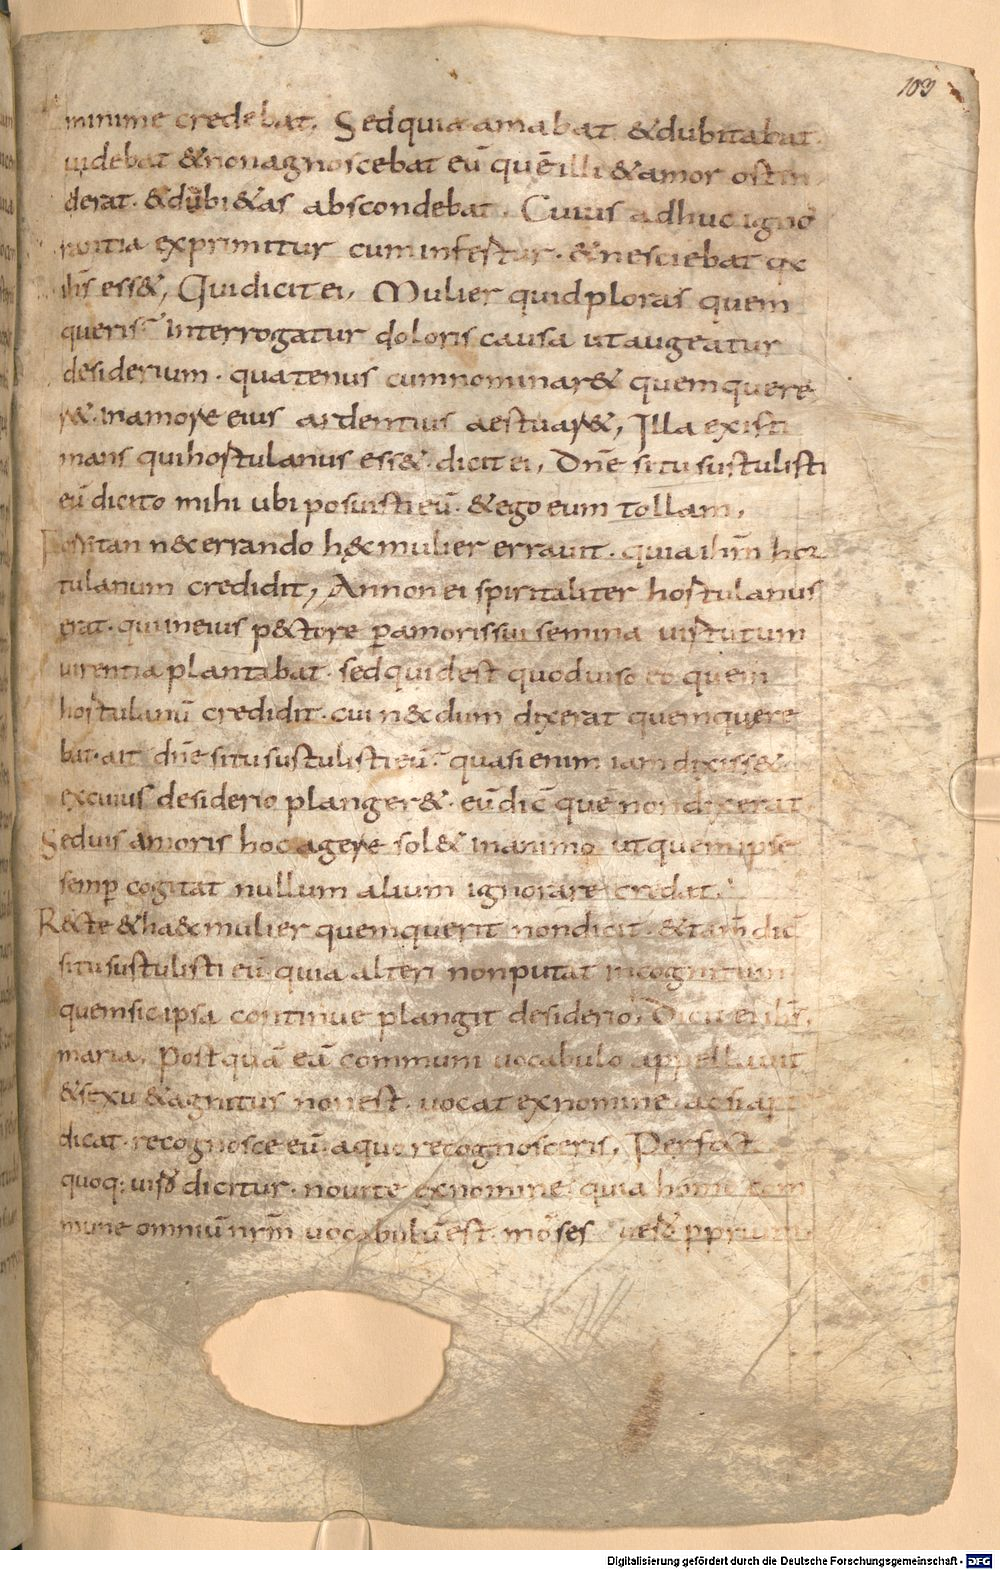 103
minime credebat. Sed quia amabat &dubitabat.
uidebat &nonagnoscebat eū quē illi &amor osten
derat. &dubi&as abscondebat. Cuius adhuc igno
rantia exprimitur cum infertur. &nesciebat qa
ihs ess&, Qui dicit ei, Mulier quid ploras quem
queris? Interrogatur doloris causa ut augeatur
desiderium. quatenus cum nominar& quem quere
r&. in amore eius ardentius aestuar&, Illa existi
mans qui hortulanus ess&. dicit ei, Dn̄e si tu sustulisti
eū dicito mihi ubi posuisti eū. &ego eum tollam,
Forsitan n&c errando hęc mulier errauit. quia ihm̄ hor
tulanum credidit, An non ei spiritaliter hortulanus
erat. qui in eius p&ctore p̱ amoris sui semina uirtutum
uirentia plantabat. sed quid est quod uiso eo quem
hortulanū credidit. cui n&dum dixerat quem quere
bat. ait dn̄e si tu sustulisti eū. quasi enim iam dixiss&
ex cuius desiderio planger&. eū dic̄ quē non dixerat.
Sed uis amoris hoc agere sol& in animo. ut quem ipse
semp̱ cogitat nullum alium ignorare credat.
R&cte &ha&c mulier quem querit non dicit. &tam̄ dic̄
si tu sustulisti eū. quia alteri non putat incognitum
quem sic ipsa continue plangit desiderio, Dicit ei ihs̄,
maria, Postquā eā communi uocabulo appellauit
&sexu &agnitus non est. uocat ex nomine. ac si ap
dicat. recognosce eū. a quo recognosceris, Perfect
quoq; uiro dicitur. noui te ex nomine. quia homo com
mune omniū nr̄m uocabulū est. moẏses uero propriū
Digitalisierung gefördert durch die Deutsche Forschungsgemeinschaft - DFG